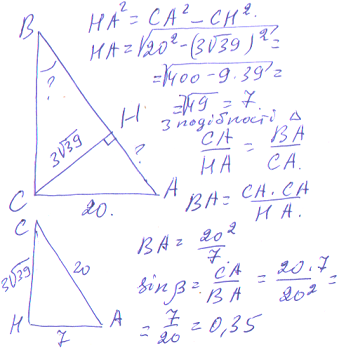 HA² = CA² – CH².
HA = √20² – (3√39)² =
= √400 – 9·39 =
= √49 = 7.
З подібності Δ
CA/HA = BA/CA.
BA = CA·CA/HA.
B
?
H
3√39
?
C
20.
A
C
3√39
20
H
7
A
BA = 20²/7
sin β = CA/BA = 20·7/20² =
= 7/20 = 0,35